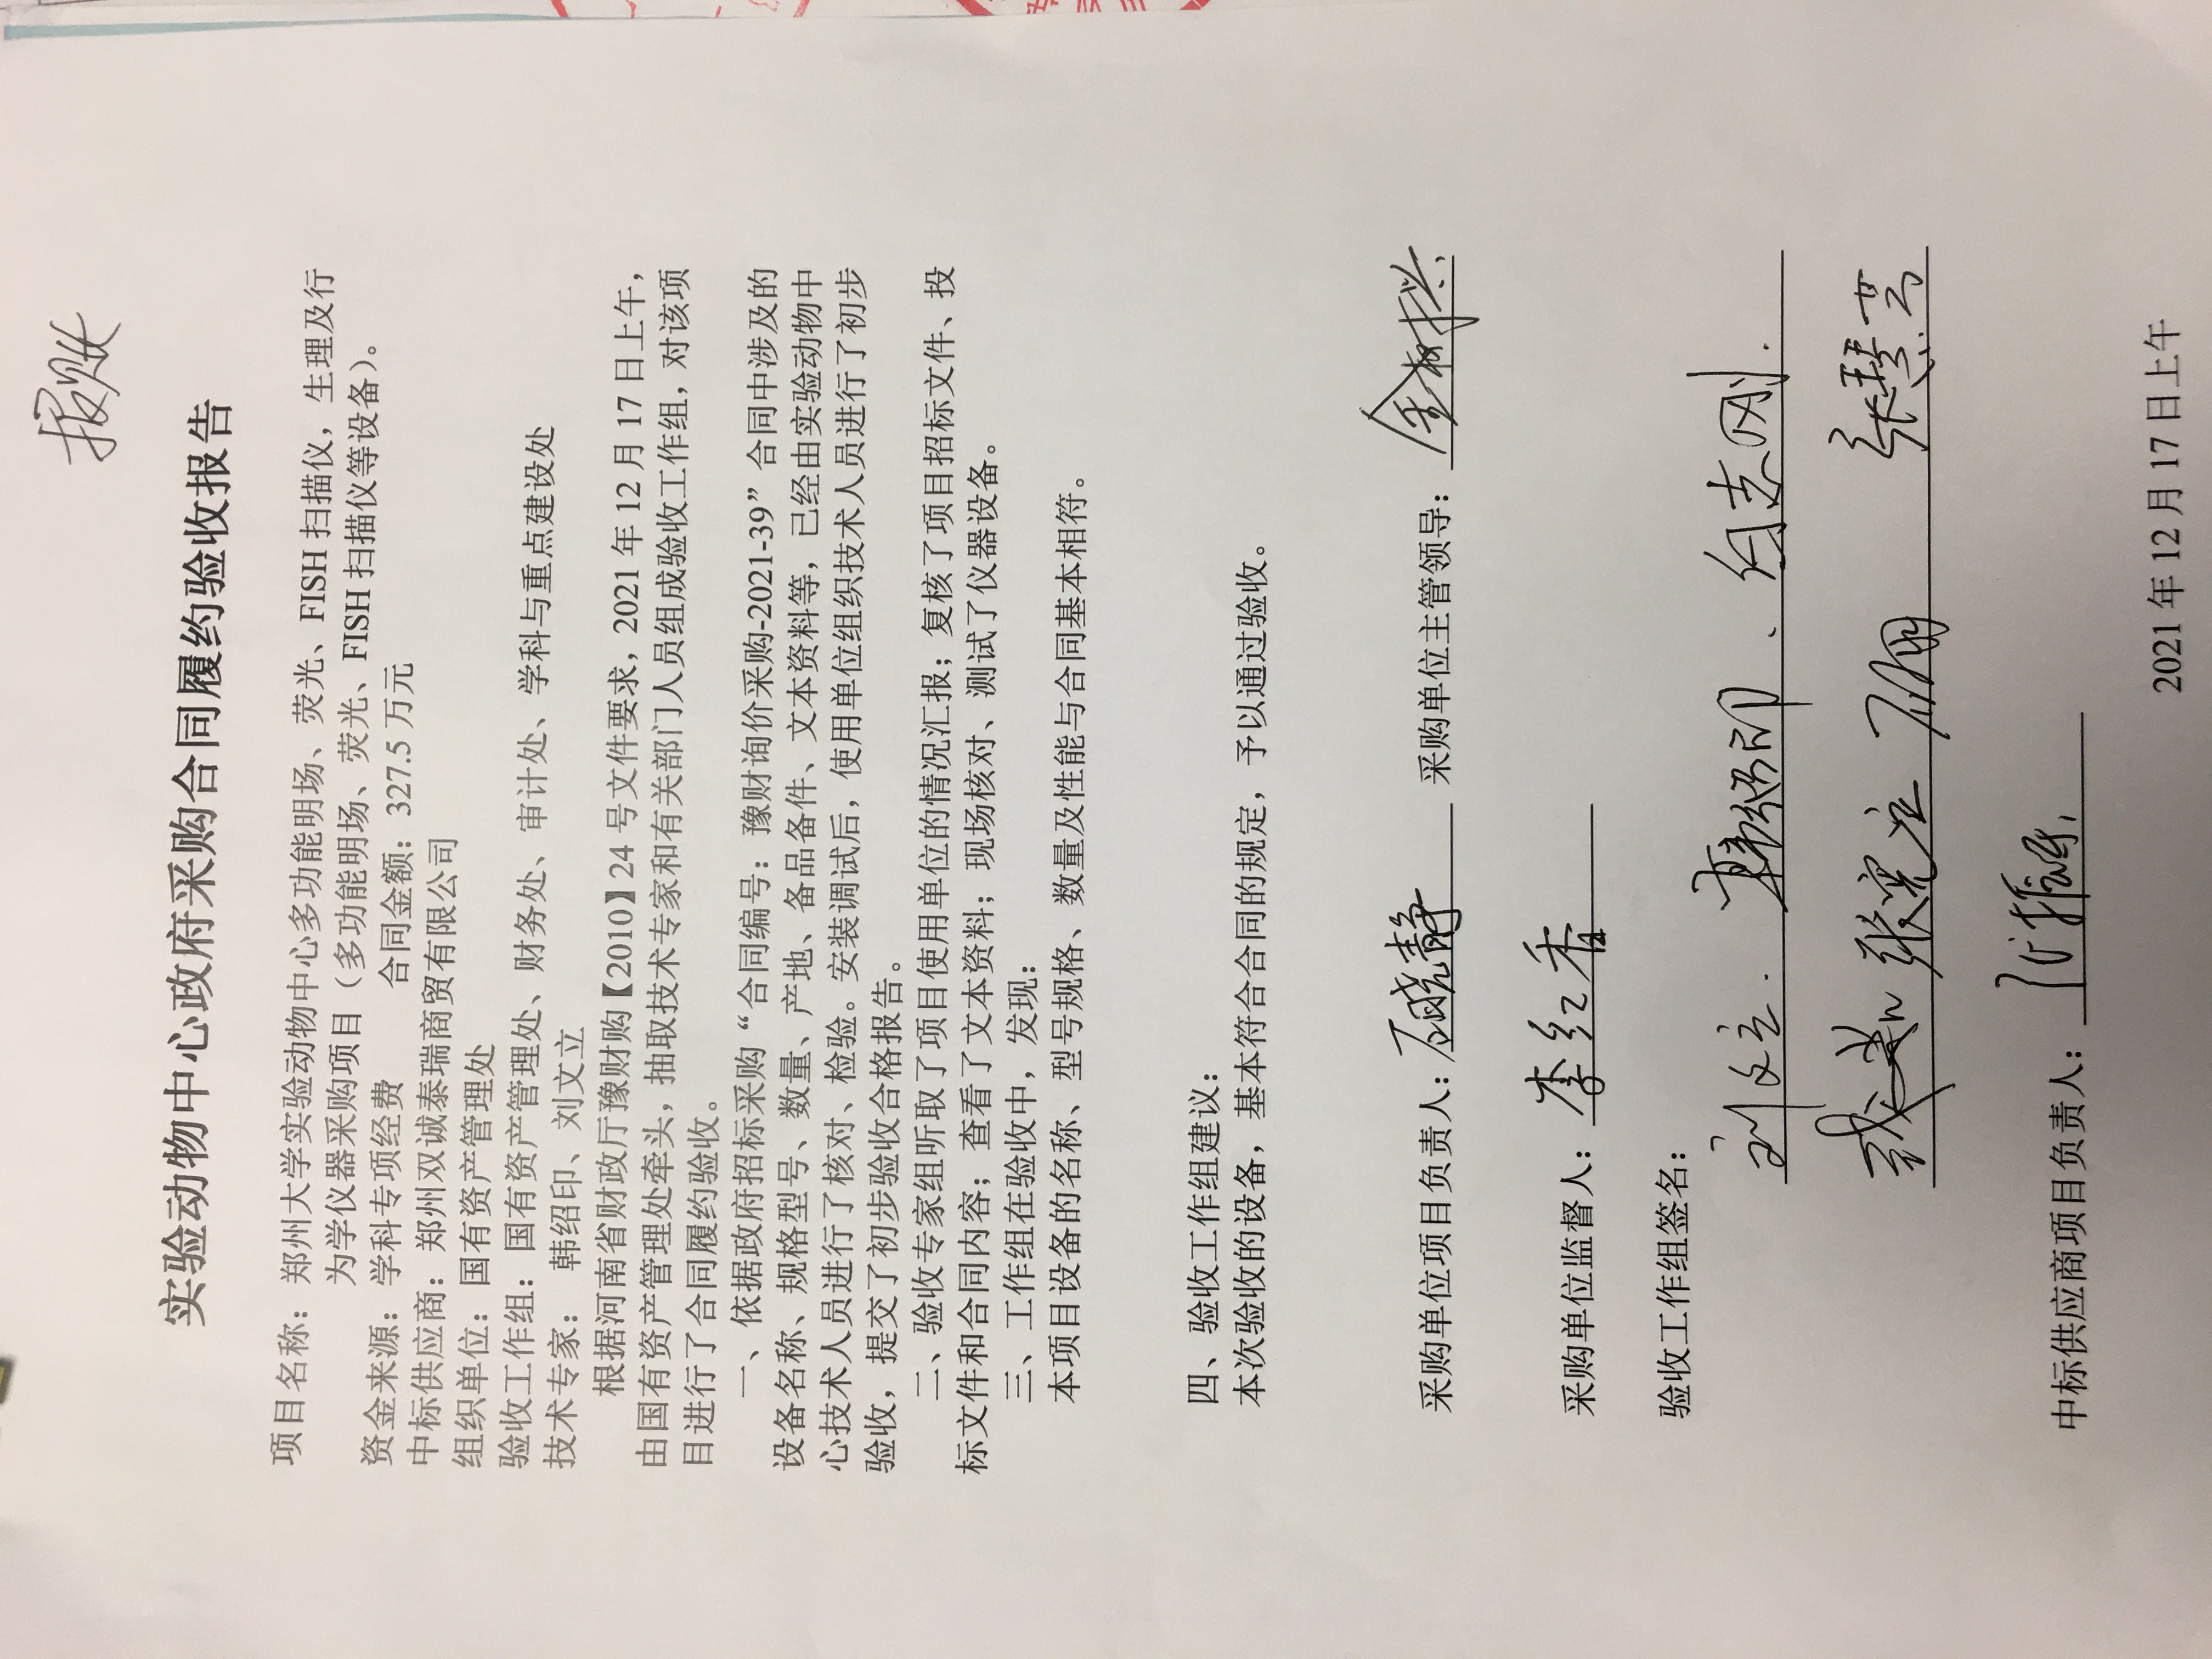 报账
实验动物中心政府采购合同履约验收报告
项目名称：郑州大学实验动物中心多功能明场、荧光、FISH 扫描仪，生理及行
为学仪器采购项目（多功能明场、荧光、FISH 扫描仪等设备）。
资金来源：学科专项经费 合同金额：327.5 万元
中标供应商：郑州双诚泰瑞商贸有限公司
组织单位：国有资产管理处
验收工作组：国有资产管理处、财务处、审计处、学科与重点建设处
技术专家：韩绍印、刘文立
根据河南省财政厅豫财购【2010】24 号文件要求，2021 年 12 月 17 日上午，
由国有资产管理处牵头，抽取技术专家和有关部门人员组成验收工作组，对该项
目进行了合同履约验收。
一、依据政府招标采购“合同编号：豫财询价采购-2021-39”合同中涉及的
设备名称、规格型号、数量、产地、备品备件、文本资料等，已经由实验动物中
心技术人员进行了核对、检验。安装调试后，使用单位组织技术人员进行了初步
验收，提交了初步验收合格报告。
二、验收专家组听取了项目使用单位的情况汇报；复核了项目招标文件、投
标文件和合同内容；查看了文本资料；现场核对、测试了仪器设备。
三、工作组在验收中，发现：
本项目设备的名称、型号规格、数量及性能与合同基本相符。
四、验收工作组建议：
本次验收的设备，基本符合合同的规定，予以通过验收。
采购单位项目负责人：石晓静 采购单位主管领导：
采购单位监督人：李红香
验收工作组签名：
刘文立. 韩绍印、白志刚.
中标供应商项目负责人：
2021 年 12 月 17 日上午